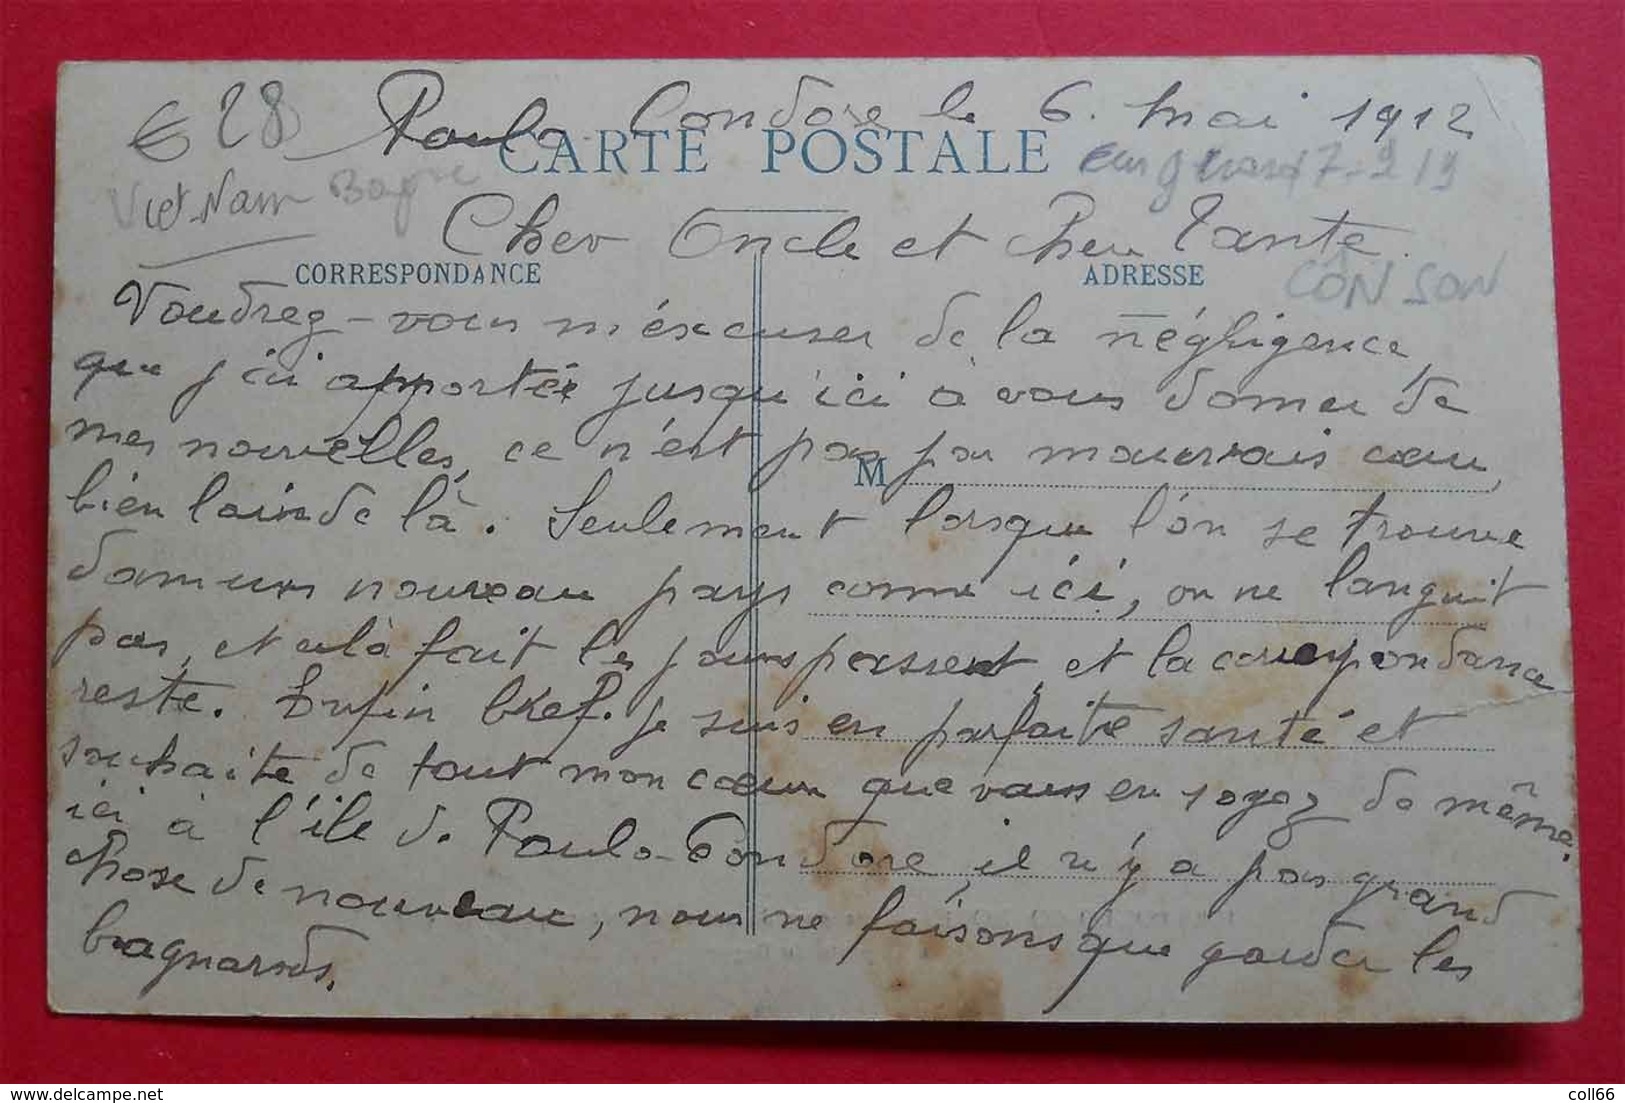 € 28 Poulo Condore le 6. Mai 1912
CARTE POSTALE
Viet Nam Bagne
Cher Oncle et Cher Tante.
CORRESPONDANCE ADRESSE
CÔN SON
Voudrez-vous m'éxcuser de la négligence,
que j'ai apportée jusqu'ici à vous donner de
mes nouvelles, ce n'est pas par mauvais cœur,
M
bien loin de là. Seulement lorsque l'on se trouve
dans un nouveau pays comme ici, on ne languit
pas, et celà fait les jours passent, et la correspondance
reste. Enfin bref. je suis en parfaite santé et
souhaite de tout mon cœur que vous en soyez de même.
ici à l'île de Poulo-Condore, il n'y a pas grand
chose de nouveau, nous ne faisons que garder les
bagnards.
coll66